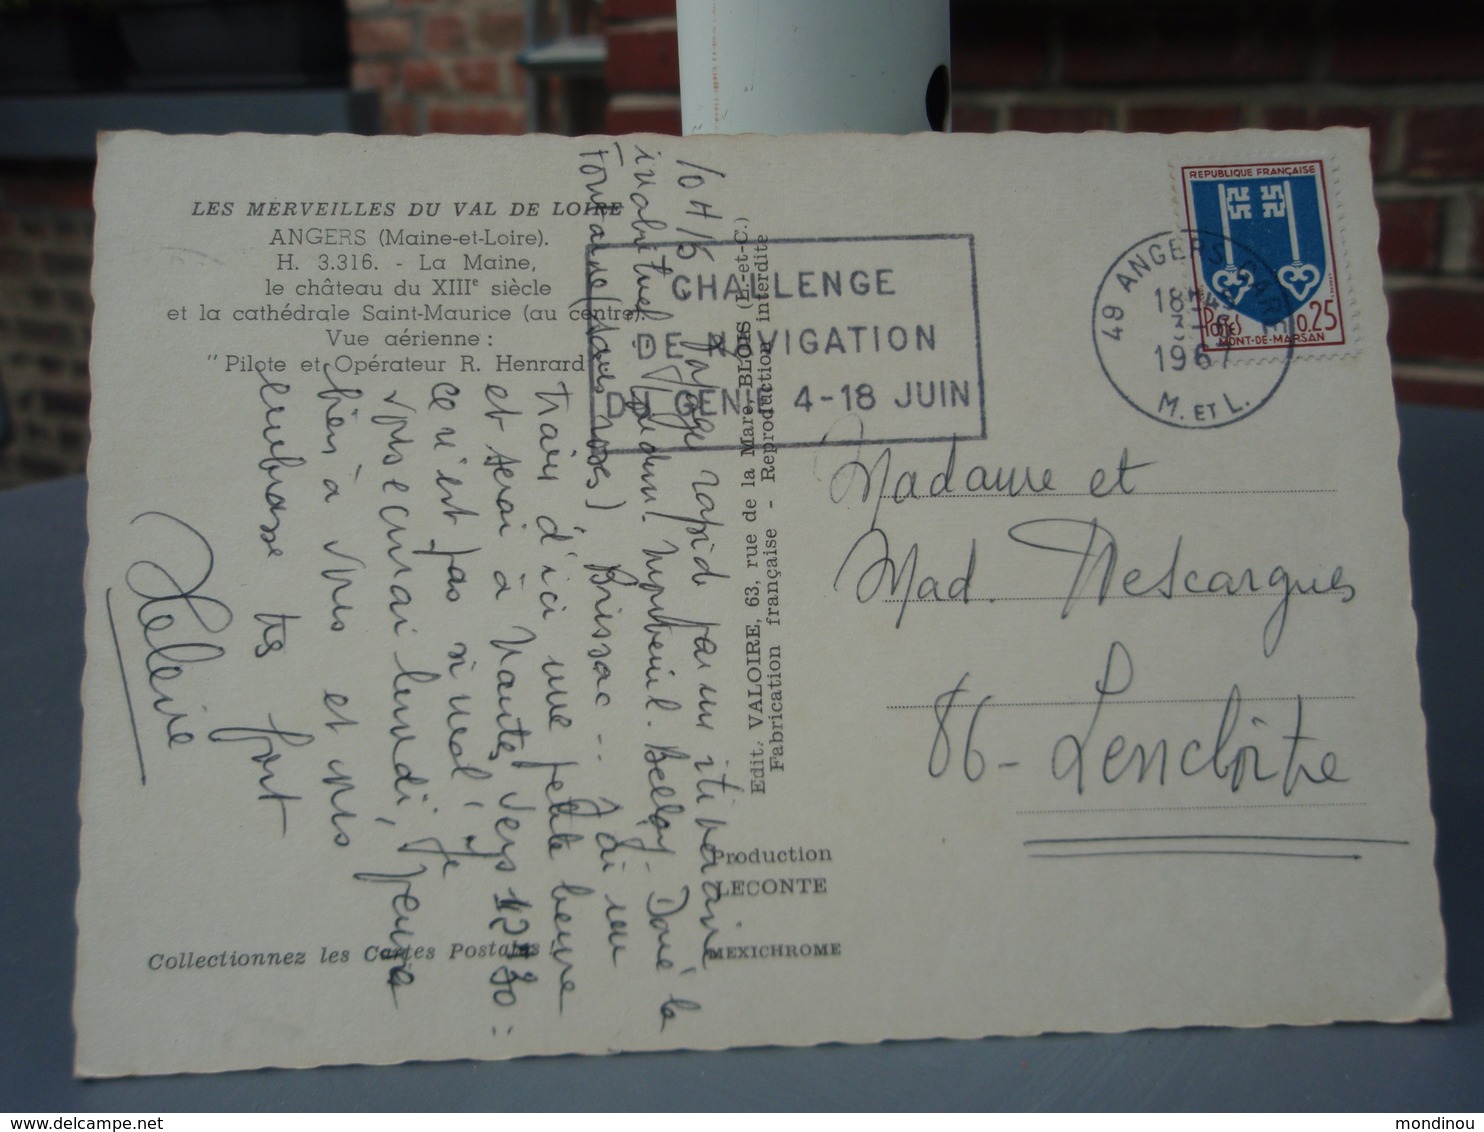 LES MERVEILLES DU VAL DE LOIRE
ANGERS (Maine-et-Loire).
H. 3.316. - La Maine,
le château du XIIIe siècle
et la cathédrale Saint-Maurice (au centre).
Vue aérienne :
" Pilote et Opérateur R. Henrard
Collectionnez les Cartes Postales
Edit. VALOIRE, 63, rue de la Mare, BLOIS (L.-et-C.)
Fabrication française - Reproduction interdite
Production
LECONTE
MEXICHROME
CHALLENGE
DE NAVIGATION
DU GENIE 4-18 JUIN
49 ANGERS GARE
18H
1967
M. ET L.
REPUBLIQUE FRANÇAISE
Postes
0.25
MONT-DE-MARSAN
10H15 Voyage rapide par un itinéraire
inhabituel Loudun! Montreuil. Bellay - Doué la
Fontaine (ses roses) Brissac -- J'ai un
train d'ici une petite heure
et serai à Nantes vers 12H30 :
ce n'est pas si mal! Je
vous écrirai lundi, pense
bien à vous et vous
embrasse très fort
Helene
Madame et
Mad. Descargues
86 - Lencloître
mondinou